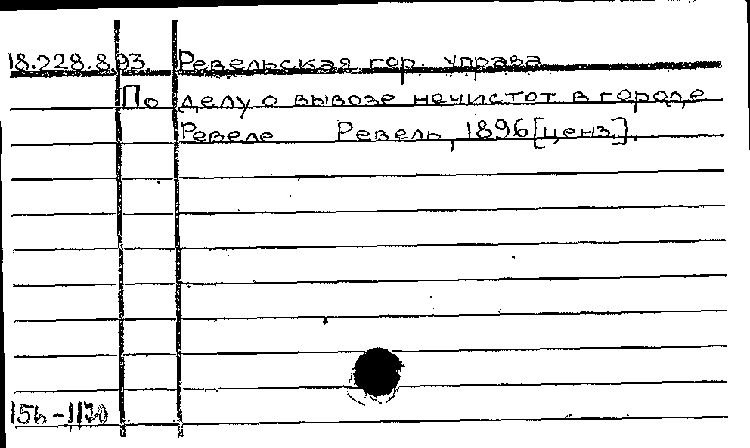 18.228.8.93 Ревельская гор. управа
По делу о вывозе нечистот в городе
Ревеле Ревель, 1896 [ценз].